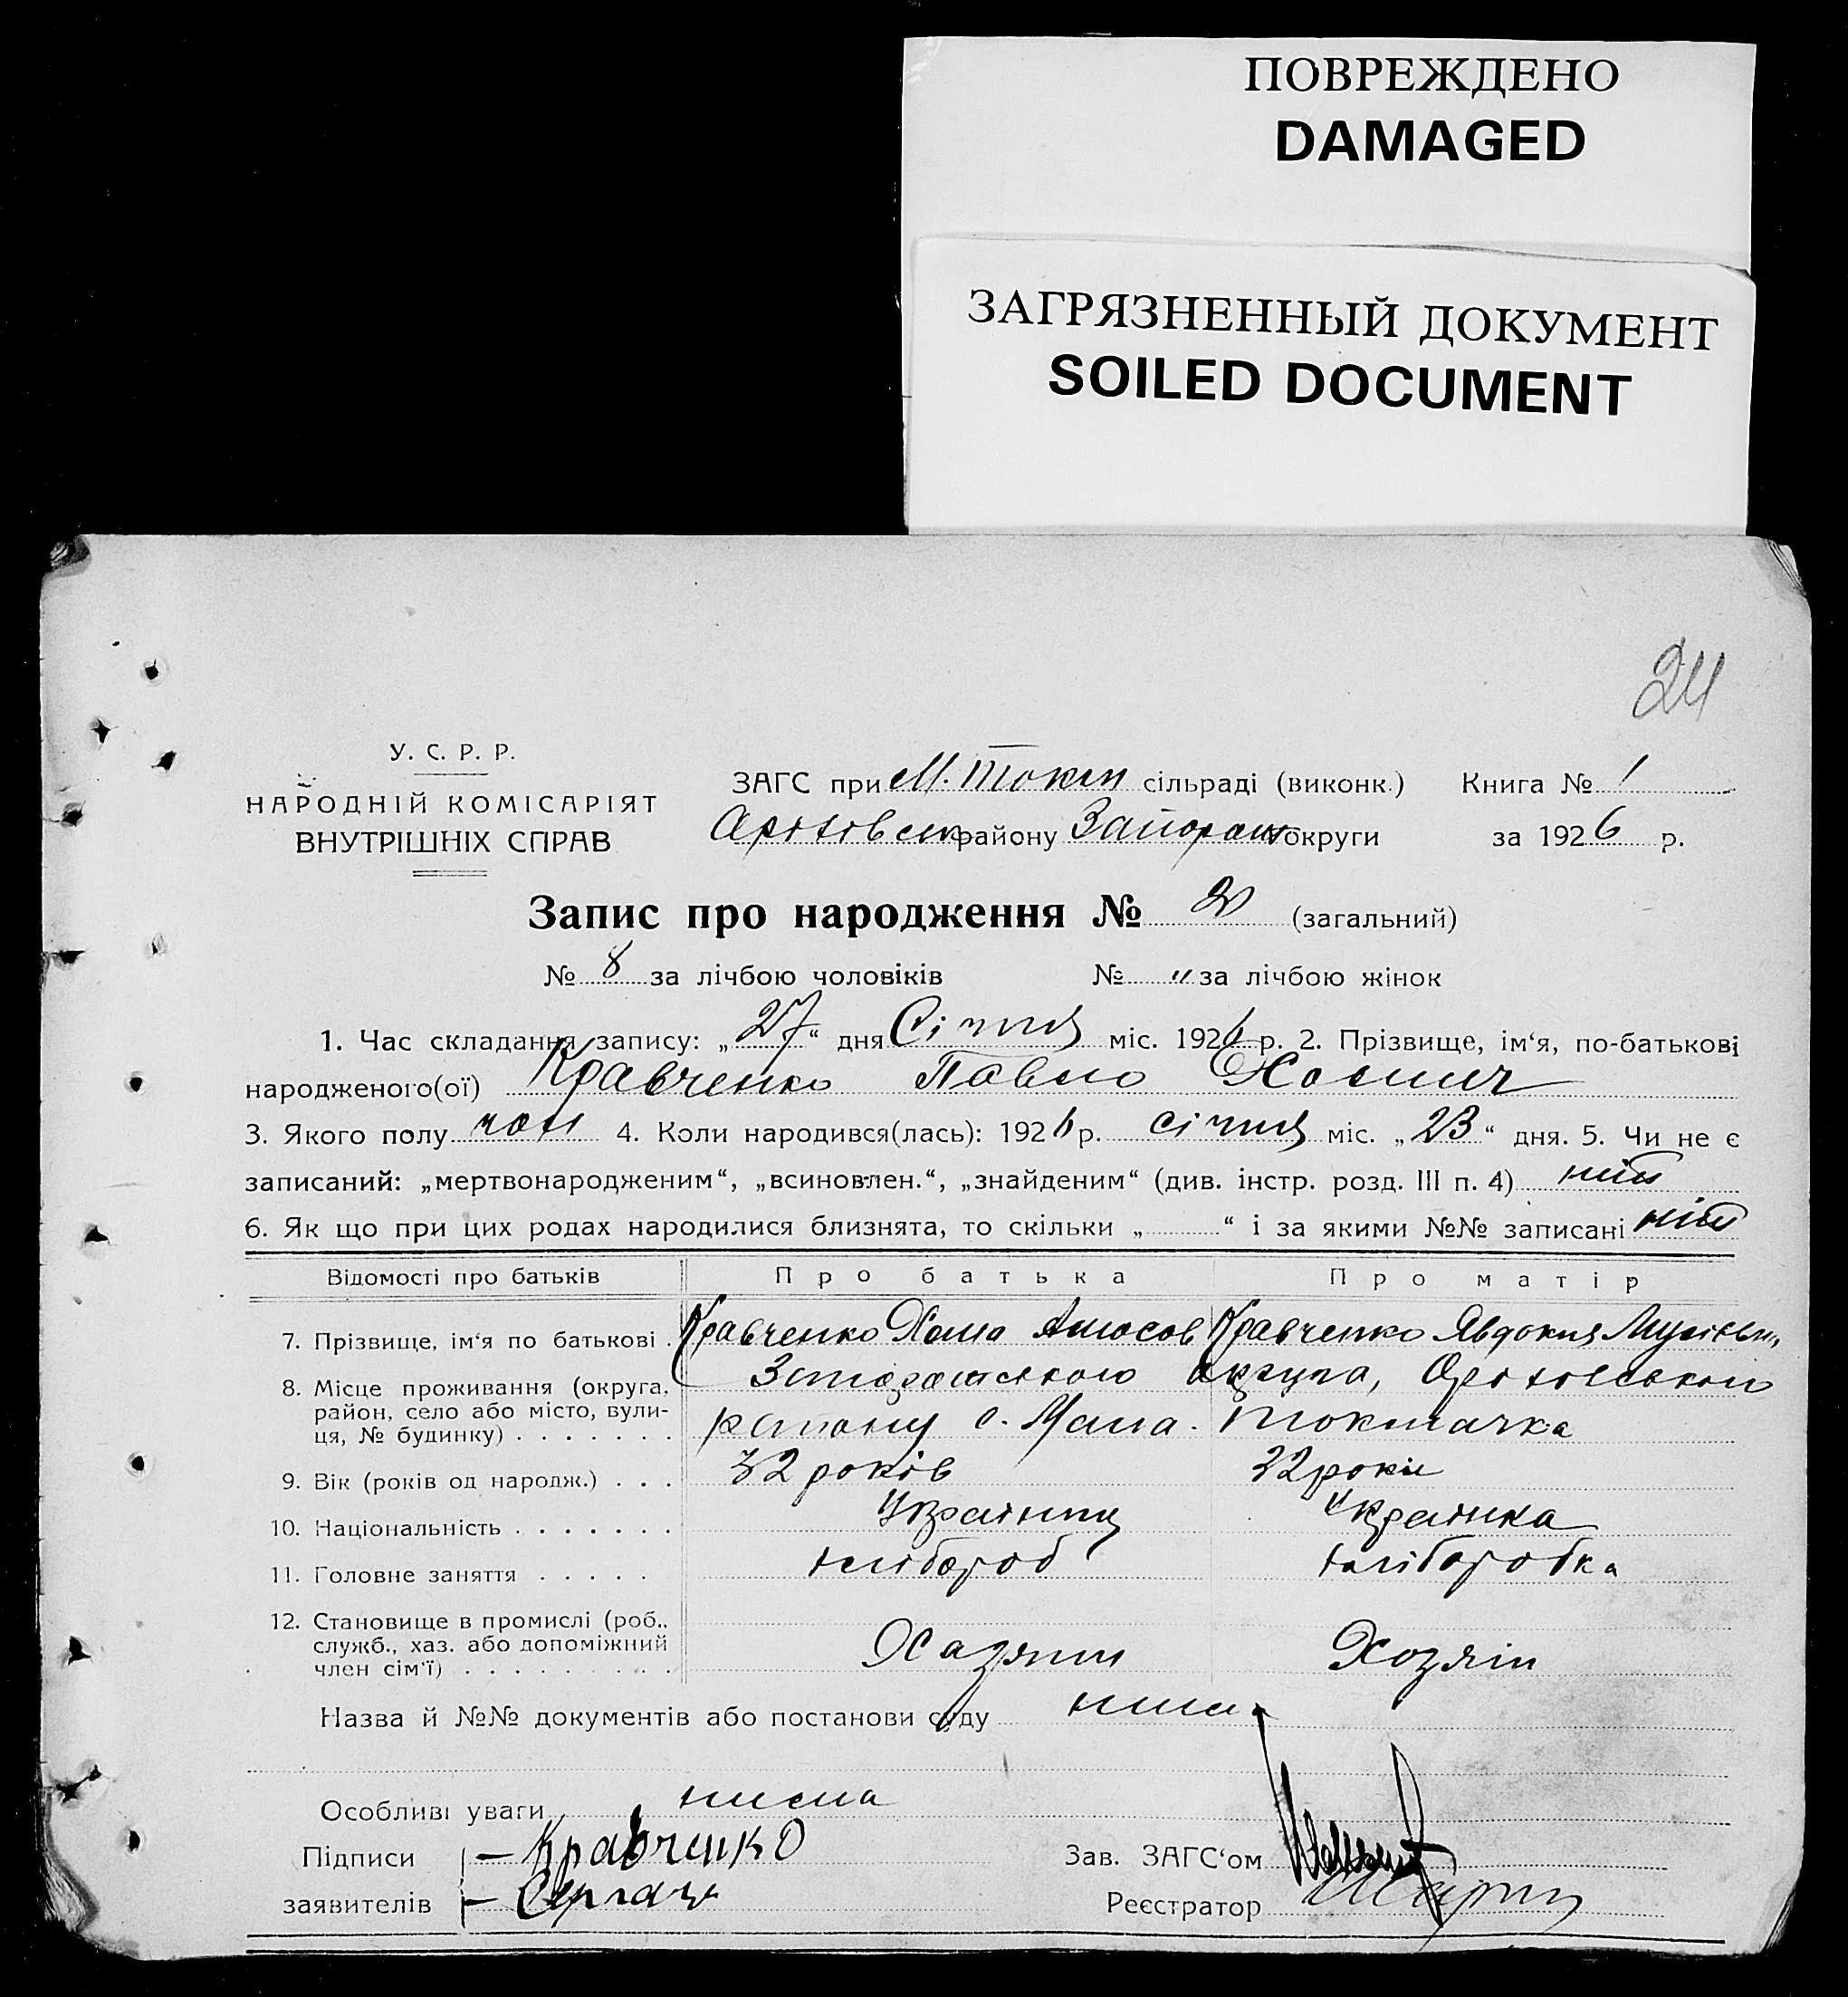 ПОВРЕЖДЕНО
DAMAGED
ЗАГРЯЗНЕННЫЙ ДОКУМЕНТ
SOILED DOCUMENT
24
У. С. Р. Р.
НАРОДНІЙ КОМІСАРІЯТ
ВНУТРІШНІХ СПРАВ
ЗАГС при М. Токм сільраді (виконк.) Книга № 1
району округи за 1926 р.
Запис про народження № (загальний)
№ 8 за лічбою чоловіків № „ за лічбою жінок
1. Час складання запису: „27“ дня Січня міс. 1926 р. 2. Прізвище, ім‘я, по-батькові
народженого(ої) Кравченко Павло Хомич
3. Якого полу чол 4. Коли народився(лась): 1926 р. січня міс. „23“ дня. 5. Чи не є
записаний: „мертвонародженим“, „всиновлен.“, „знайденим“ (див. інстр. розд. III п. 4) ніт
6. Як що при цих родах народилися близнята, то скільки „ “ і за якими №№ записані ніт
Відомості про батьків Про батька Про матір
7. Прізвище, ім‘я по батькові . Кравченко Хома Амосов Кравченко Явдокия
8. Місце проживання (округа, округа, Оріховського
район, село або місто, вули- району с. Мала - Токмачка
ця, № будинку) . . . . . . .
9. Вік (років од народж.) . . . 32 років 32 роки
10. Національність . . . . . . . Українец Українка
11. Головне заняття . . . . . хлібороб хліборобка
12. Становище в промислі (роб.,
служб., хаз. або допоміжний Хазяин Хозяін
член сім‘ї) . . . . . . . . .
Назва й №№ документів або постанови суду нима
Особливі уваги нима
Підписи – Кравченко Зав. ЗАГС‘ом
заявителів – Реєстратор